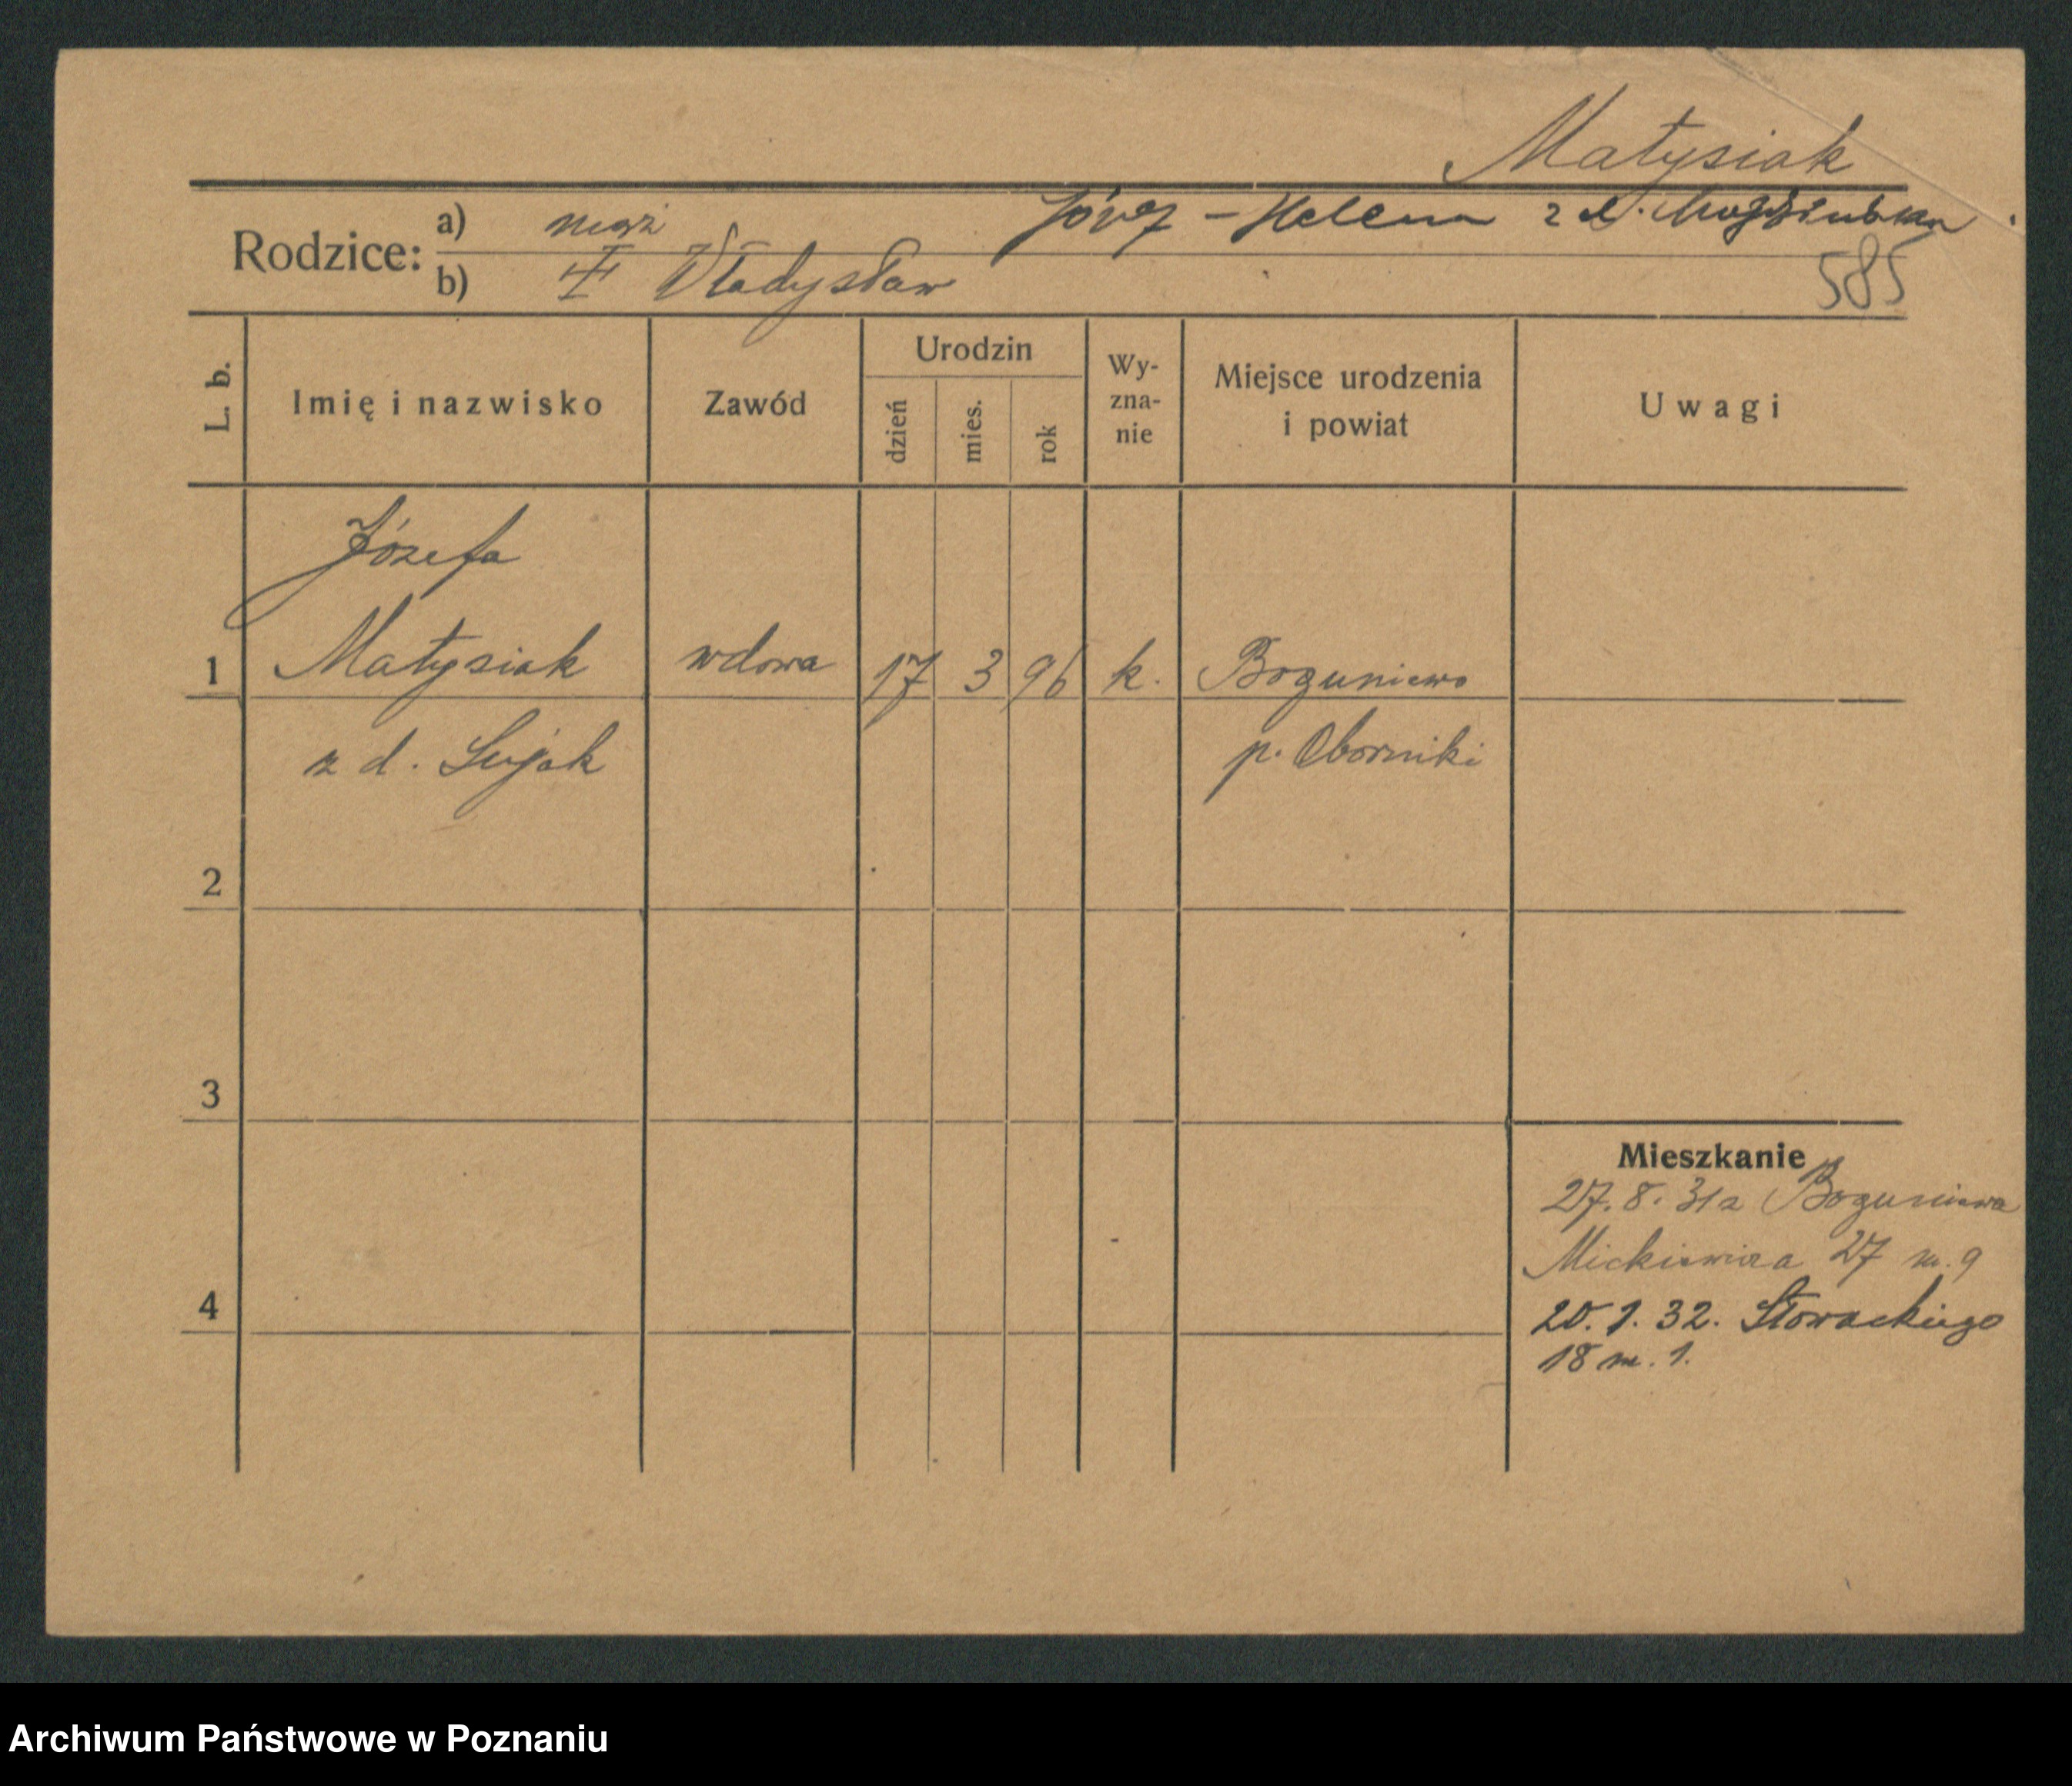 Matysiak
Rodzice: a) mąż Józef - Helena z d.
b) Władysław
585
L. b. Imię i nazwisko Zawód Urodzin dzień mies. rok Wy-zna-nie Miejsce urodzenia i powiat Uwagi
Józefa
1 Matysiak wdowa 17 3 96 k. Boguniewo
z d. Sujak p. Oborniki
2
3
Mieszkanie
27.8.31 z Boguniewa
Mickiewicza 27 m. 9
4
20.1.32. Słowackiego
18 m. 1.
Archiwum Państwowe w Poznaniu